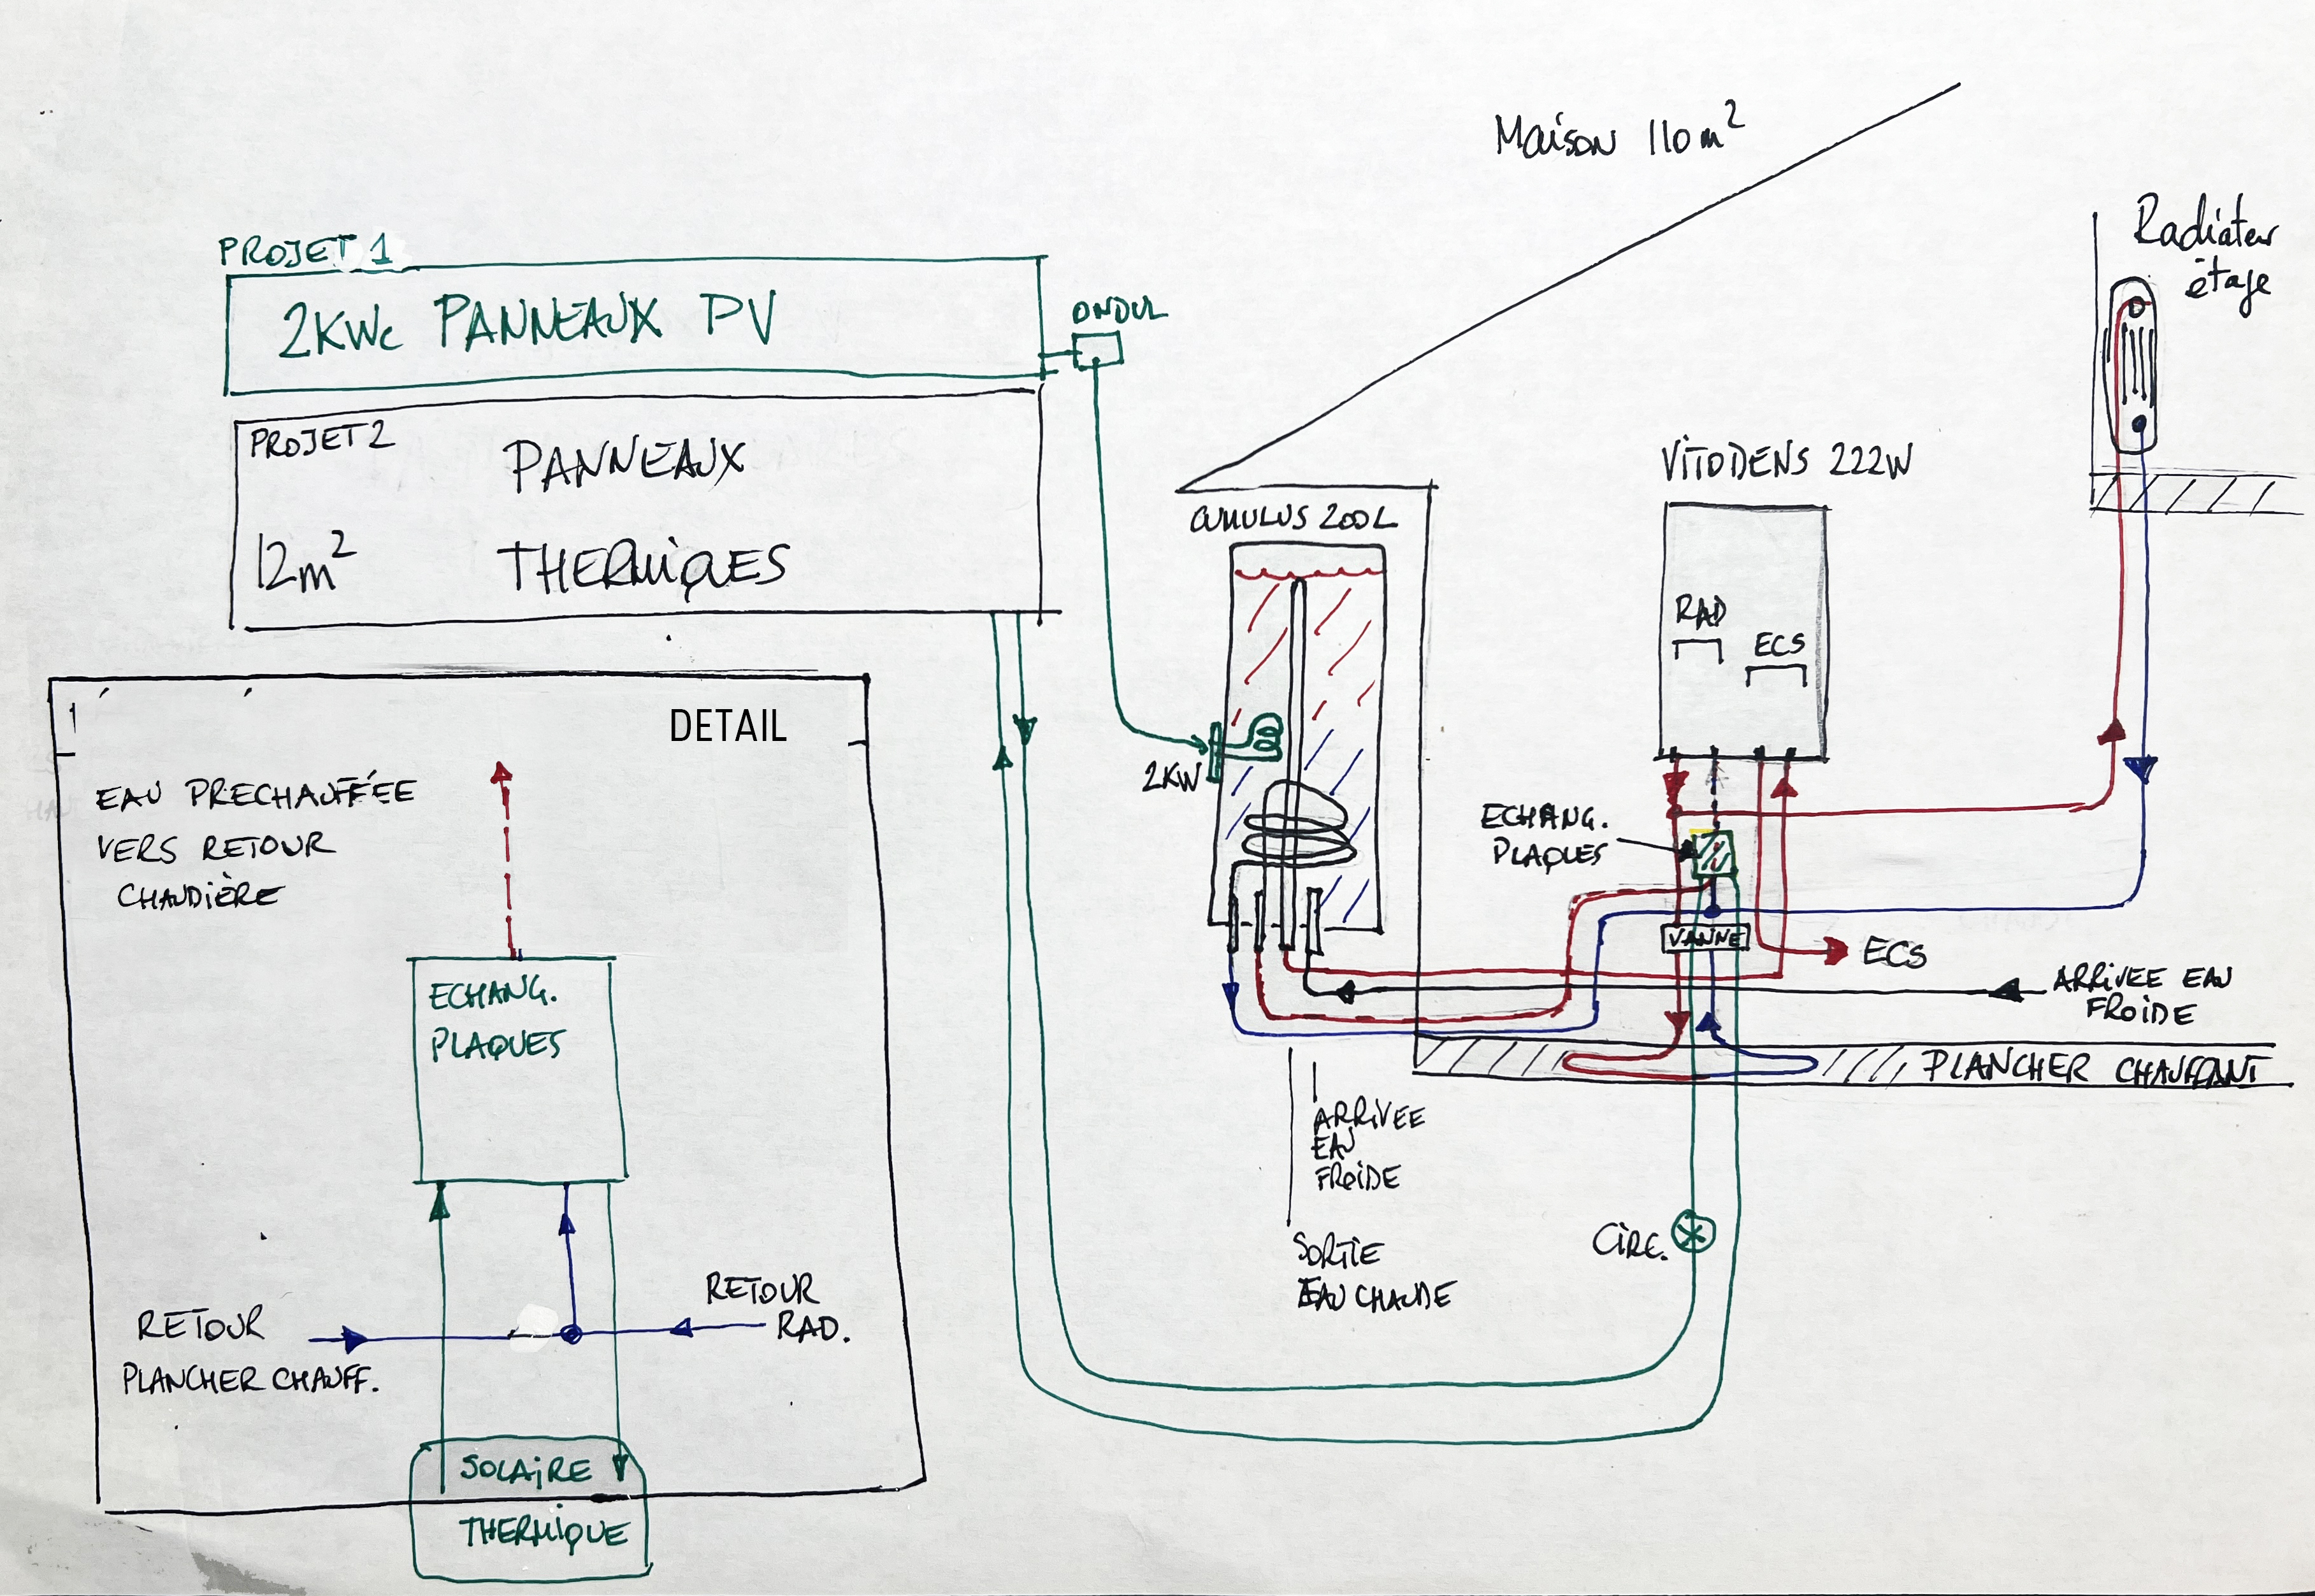 Maison 110m²
Radiateur
étage
PROJET 1
2KWc PANNEAUX PV
ONDUL
PROJET 2
PANNEAUX
12m²
THERMIQUES
CUMULUS 200L
VITODENS 222W
RAD
ECS
2KW
ECHANG.
PLAQUES
VANNE
ECS
ARRIVEE EAU
FROIDE
PLANCHER CHAUFFANT
ARRIVEE
EAU
FROIDE
SORTIE
EAU CHAUDE
CIRC.
1
DETAIL
EAU PRECHAUFFÉE
VERS RETOUR
CHAUDIÈRE
ECHANG.
PLAQUES
RETOUR
PLANCHER CHAUFF.
RETOUR
RAD.
SOLAIRE
THERMIQUE